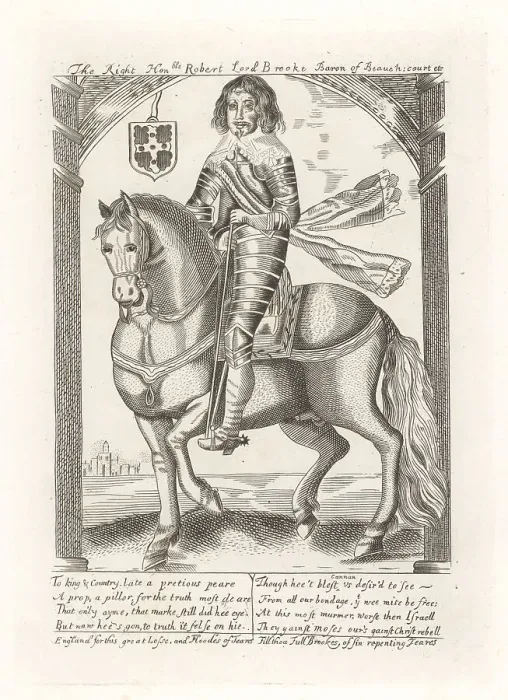 The Right Honble Robert Lord Brooke Baron of Beauch:court etc
To king & Country, late a pretious peare
A prop, a pillor, for the truth most cleare
That only ayme, that marke, still did hee eye.
But now hee's gon, to truth it felfe on hie.
Though hee't blest, Cannan vs desir'd to see ~
From all our bondage, yt wee mise be free;
At this most murmer, worst then Israell
They gainst moses our's gainst Christ rebell
England for this great Losse, and floodes of Teares Till thou Full Brookes, of sin repenting Teares